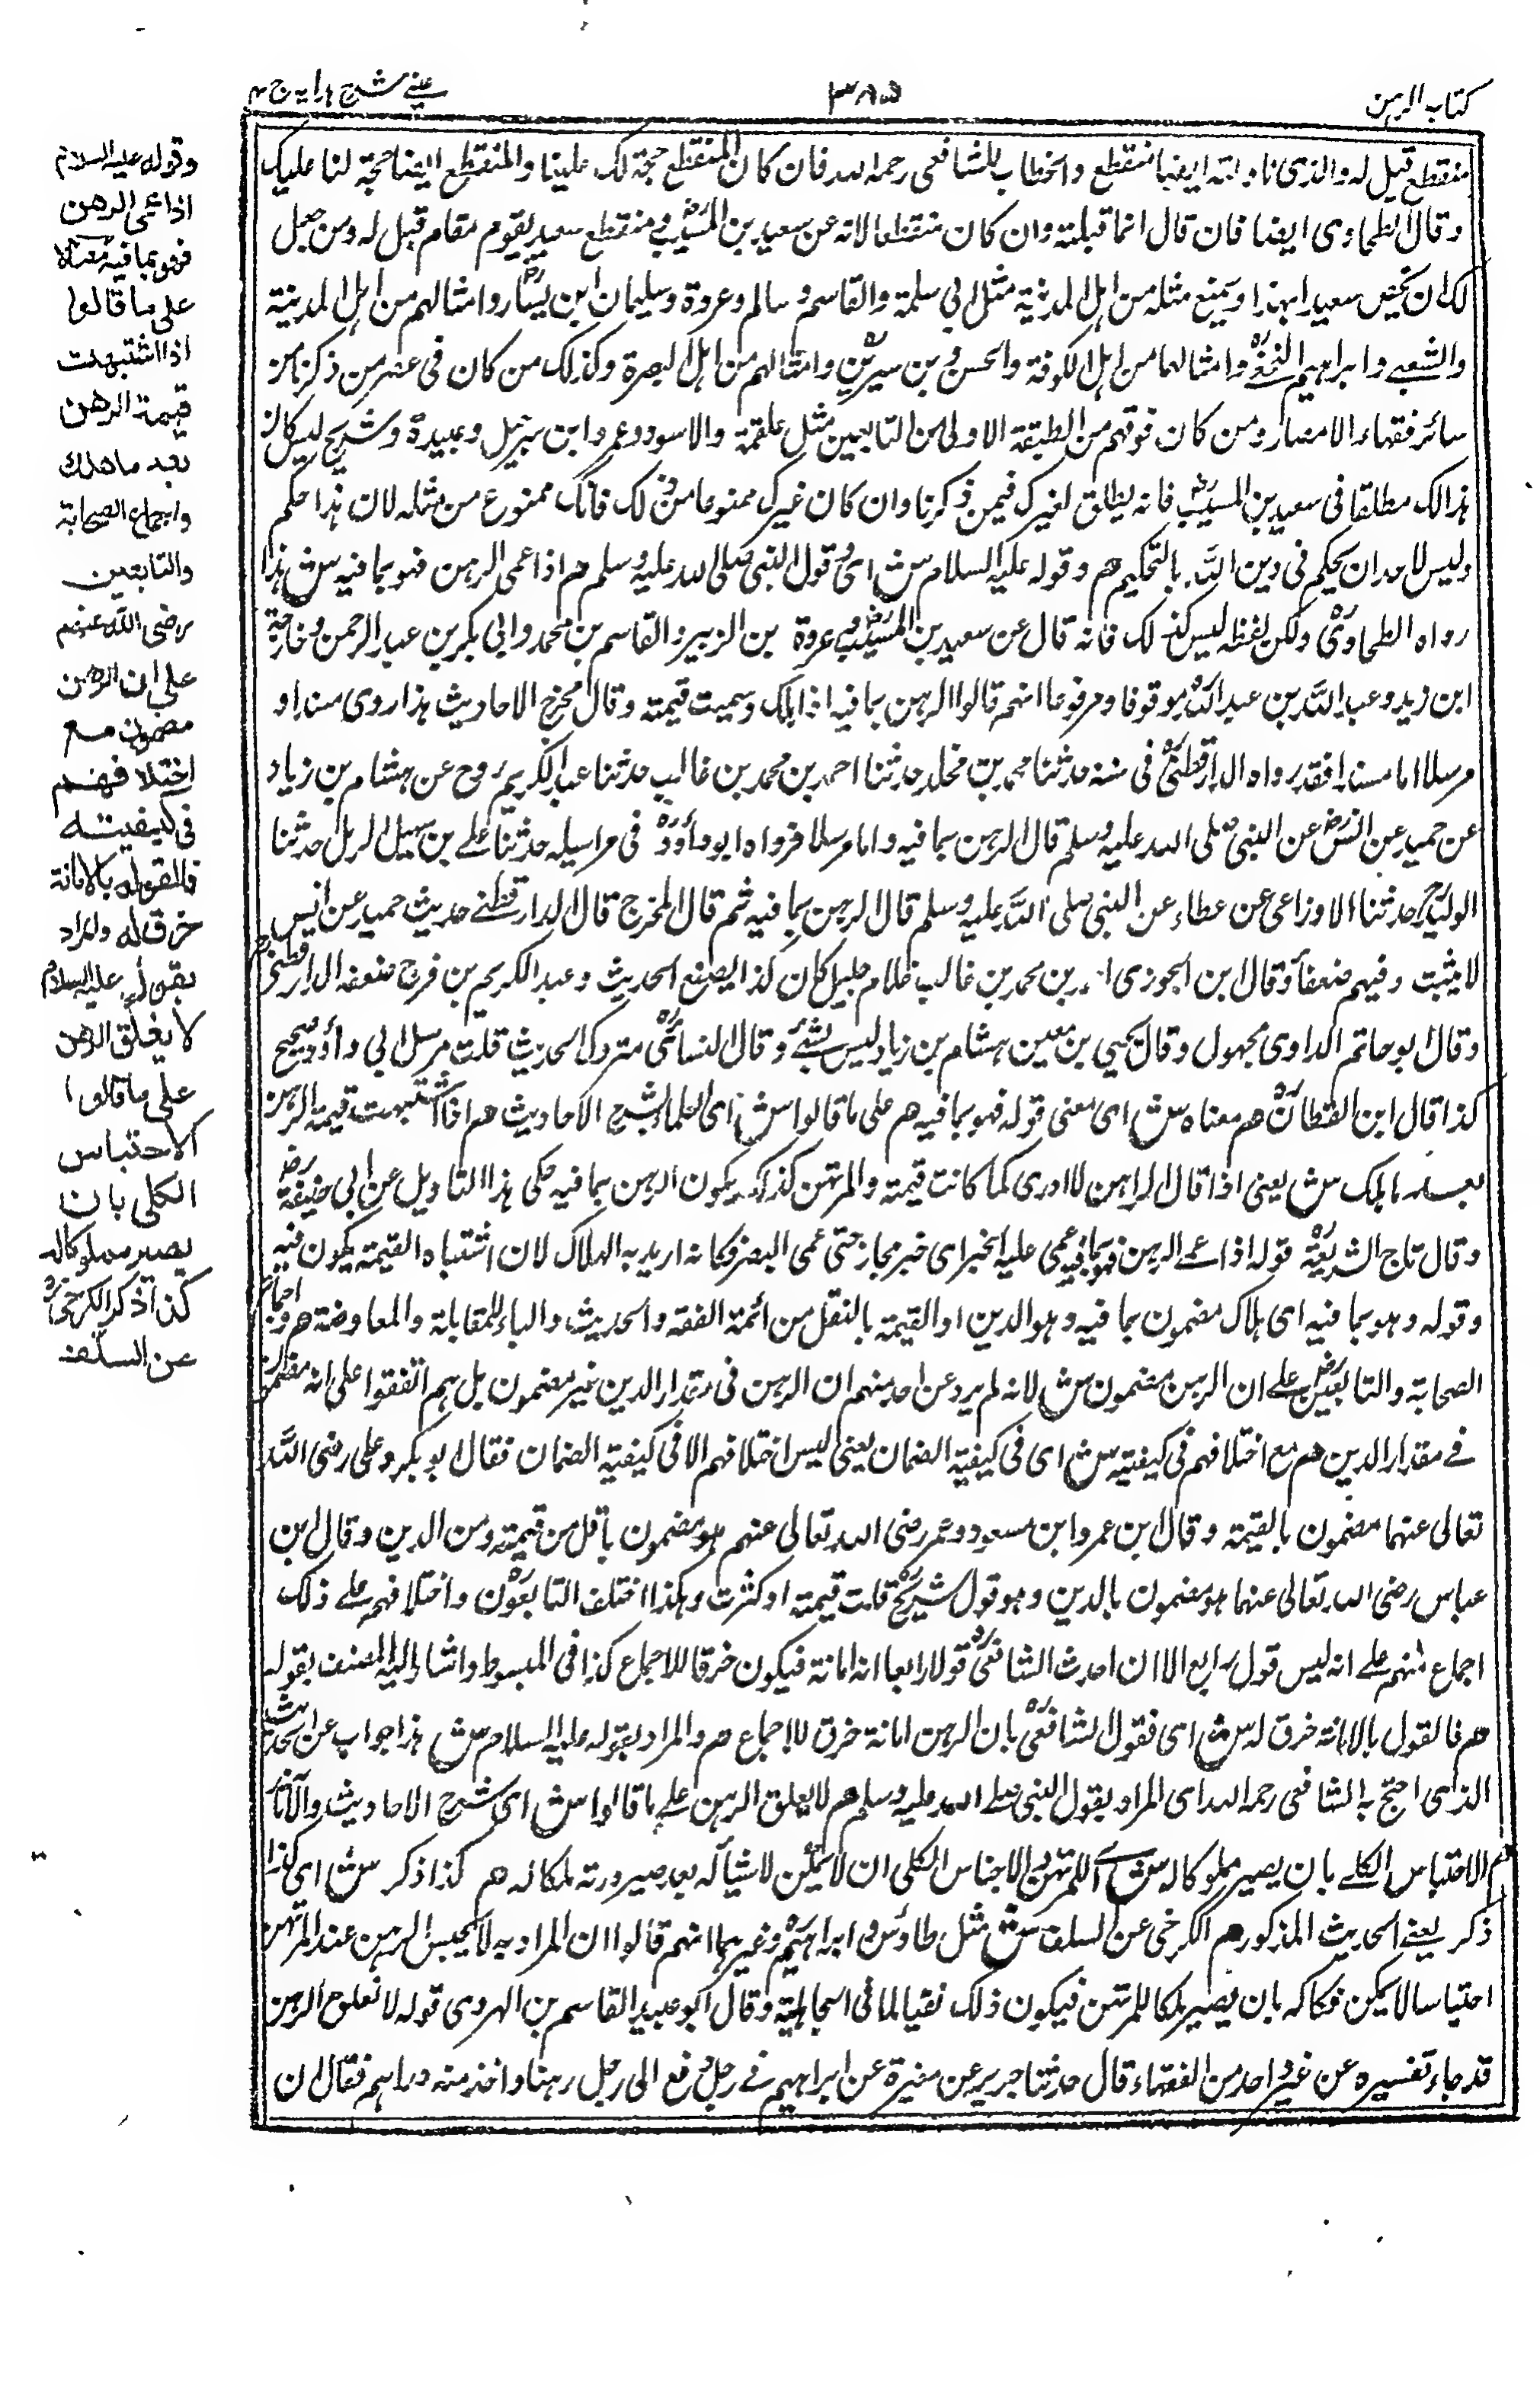 كتاب الرهن
٣٨٥
عيني شرح هدايه ج ٤
منقطع قيل له والذي ناولته ايضا منقطع والخطاب للشافعي رحمه الله فان كان المنقطع حجة لك علينا والمنقطع ايضا حجة لنا عليك
وقال الطحاوي ايضا فان قال انما قبلته وان كان منقطعا لانه عن سعيد بن المسيب ومنقطع سعيد يقوم مقام قيل له ومن جعل
لك ان تخص سعيدا بهذا وتمنع مثله من اهل المدينة مثل ابي سلمة والقاسم وسالم وعروة وسليمان ابن يسار وامثالهم من اهل المدينة
والشعبي وابراهيم النخعي وامثالهما من اهل الكوفة والحسن وبن سيرين وامثالهم من اهل البصرة وكذلك من كان في عصر من ذكرنا من
سائر فقهاء الامصار ومن كان فوقهم من الطبقة الاولى من التابعين مثل علقمة والاسود وعمرو ابن شرحبيل وعبيدة وشريح ليس كان
هذا لك مطلقا في سعيد بن المسيب فانه يطلق لغيرك فيمن ذكرنا وان كان غيرك ممنوعا من ذلك فانك ممنوع من مثله لان هذا حكم
وليس لاحد ان يحكم في دين الله بالتحكيم هم وقوله عليه السلام ش اي وقول النبي صلى الله عليه وسلم هم اذا عمى الرهن فهو بما فيه ش هذا
رواه الطحاوي ولكن لفظه ليس كذلك فانه قال عن سعيد بن المسيب وعروة بن الزبير والقاسم بن محمد وابي بكر بن عبد الرحمن وخارجة
ابن زيد وعبد الله بن عبد الله موقوفا ومرفوعا انهم قالوا الرهن بما فيه اذا هلك وسميت قيمته وقال مخرج الاحاديث هذا روى مسندا و
مرسلا اما مسندا فقد رواه الدارقطني في سننه حدثنا محمد بن مخلد حدثنا احمد بن محمد بن غالب حدثنا عبد الكريم روح عن هشام بن زياد
عن حميد عن انس عن النبي صلى الله عليه وسلم قال الرهن بما فيه واما مرسلا فرواه ابو داود في مراسيله حدثنا علي بن سهيل الرمل حدثنا
الوليد حدثنا الاوزاعي عن عطاء عن النبي صلى الله عليه وسلم قال الرهن بما فيه ثم قال المخرج قال الدارقطني حديث حميد عن انس
لا يثبت وفيهم ضعفا وقال ابن الجوزي احمد بن محمد بن غالب غلام خليل كان كذا يصنع الحديث وعبد الكريم بن فرج ضعفه الدارقطني
وقال ابو حاتم الداوي مجهول وقال يحيى بن معين هشام بن زياد ليس بشئ وقال النسائي متروك الحديث قلت مرسل ابي داود صحيح
كذا قال ابن القطان هم معناه ش اي معنى قوله فهو بما فيه هم على ما قالوا ش اي العلماء بشرح الاحاديث هم اذا اشتبهت قيمة الرهن
بعد ما هلك ش يعني اذا قال الراهن لا ادري كما كانت قيمته والمرتهن كذلك يكون الرهن بما فيه حكى هذا التاويل عن ابي حنيفة
وقال تاج الشريعة قوله اذا عمى الرهن فهو بما فيه عمى عليه الخبر اي خبر مجاز حتى عمى البصر فكانه اريد به الهلاك لان اشتباه القيمة يكون فيه
وقوله وهو بما فيه اي هلاك مضمون بما فيه وهو الدين او القيمة بالنقل من ائمة الفقه والحديث والباء للمقابلة والمعاوضة هم واجماع
الصحابة والتابعين على ان الرهن مضمون ش لانه لم يرد عن احد منهم ان الرهن في مقدار الدين غير مضمون بل هم اتفقوا على انه مضمون
في مقدار الدين هم مع اختلافهم في كيفيته ش اي في كيفية الضمان يعني ليس اختلافهم الا في كيفية الضمان فقال ابو بكر وعلي رضى الله
تعالى عنهما مضمون بالقيمة وقال ابن عمر وابن مسعود وعمر رضى الله تعالى عنهم هو مضمون باقل من قيمته ومن الدين وقال ابن
عباس رضى الله تعالى عنهما هو مضمون بالدين وهو قول شريح قلت قيمته او كثرت وهكذا اختلف التابعون واختلافهم على ذلك
اجماع منهم على انه ليس قول رابع الا ان احدث الشافعي قولا رابعا انه امانة فيكون خرقا للاجماع كذا في المبسوط واشار اليه المصنف بقوله
هم فالقول بالامانة خرق له ش اي فقول الشافعي بان الرهن امانة خرق للاجماع هم والمراد بقوله عليه السلام ش هذا جواب عن الحديث
الذي احتج به الشافعي رحمه الله اي المراد بقول النبي صلى الله عليه وسلم هم لا يغلق الرهن على ما قالوا ش اي شرح الاحاديث والآثار
هم الاحتباس الكلي بان يصير مملوكا له ش اي للمرتهن والاحتباس الكلي ان لا يمكن لا شيأ له بعد صيرورته ملكا له هم كذا ذكر ش اي كذا
ذكر يعني الحديث المذكور هم الكرخي عن السلف ش مثل طاؤس وابراهيم وغيرهما انهم قالوا ان المراد به لا يحبس الرهن عند المرتهن
احتباسا لا يمكن فكاكه بان يصير ملكا للمرتهن فيكون ذلك نفيا لما في الجاهلية وقال ابو عبيد القاسم بن الهروي قوله لا تغلق الرهن
قد جاء تفسيره عن غير واحد من الفقهاء قال حدثنا جرير عن مغيرة عن ابراهيم في رجل دفع الى رجل رهنا واخذ منه دراهم فقال ان
وقوله عليه السلام
اذا عمى الرهن
فهو بما فيه معناه
على ما قالوا
اذا اشتبهت
قيمة الرهن
بعد ما هلك
واجماع الصحابة
والتابعين
رضى الله عنهم
على ان الرهن
مضمون مع
اختلافهم
في كيفيته
فالقول بالامانة
خرق له والمراد
بقوله عليه السلام
لا يغلق الرهن
على ما قالوا
الاحتباس
الكلي بان
يصير مملوكا له
كذا ذكر الكرخي
عن السلف